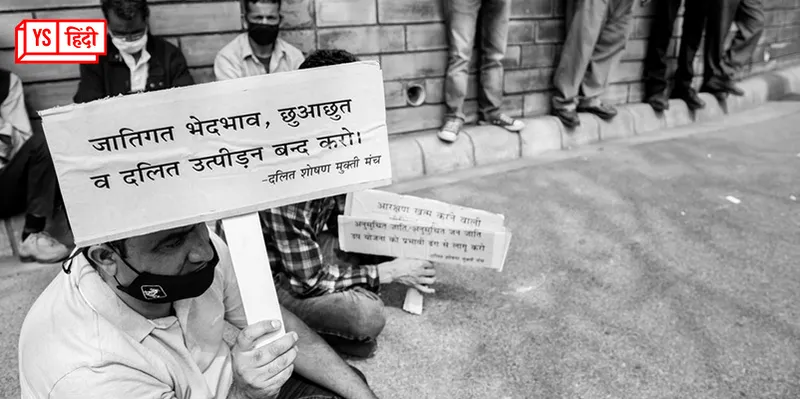 YS हिंदी
जातिगत भेदभाव, छुआछुत
व दलित उत्पीड़न बन्द करो।
-दलित शोषण मुक्ती मंच
आरक्षण खत्म करने वाली
अनुसूचित जाति, अनुसूचित जन जाति
उप योजना को प्रभावी ढंग से लागू करो
-दलित शोषण मुक्ती मंच